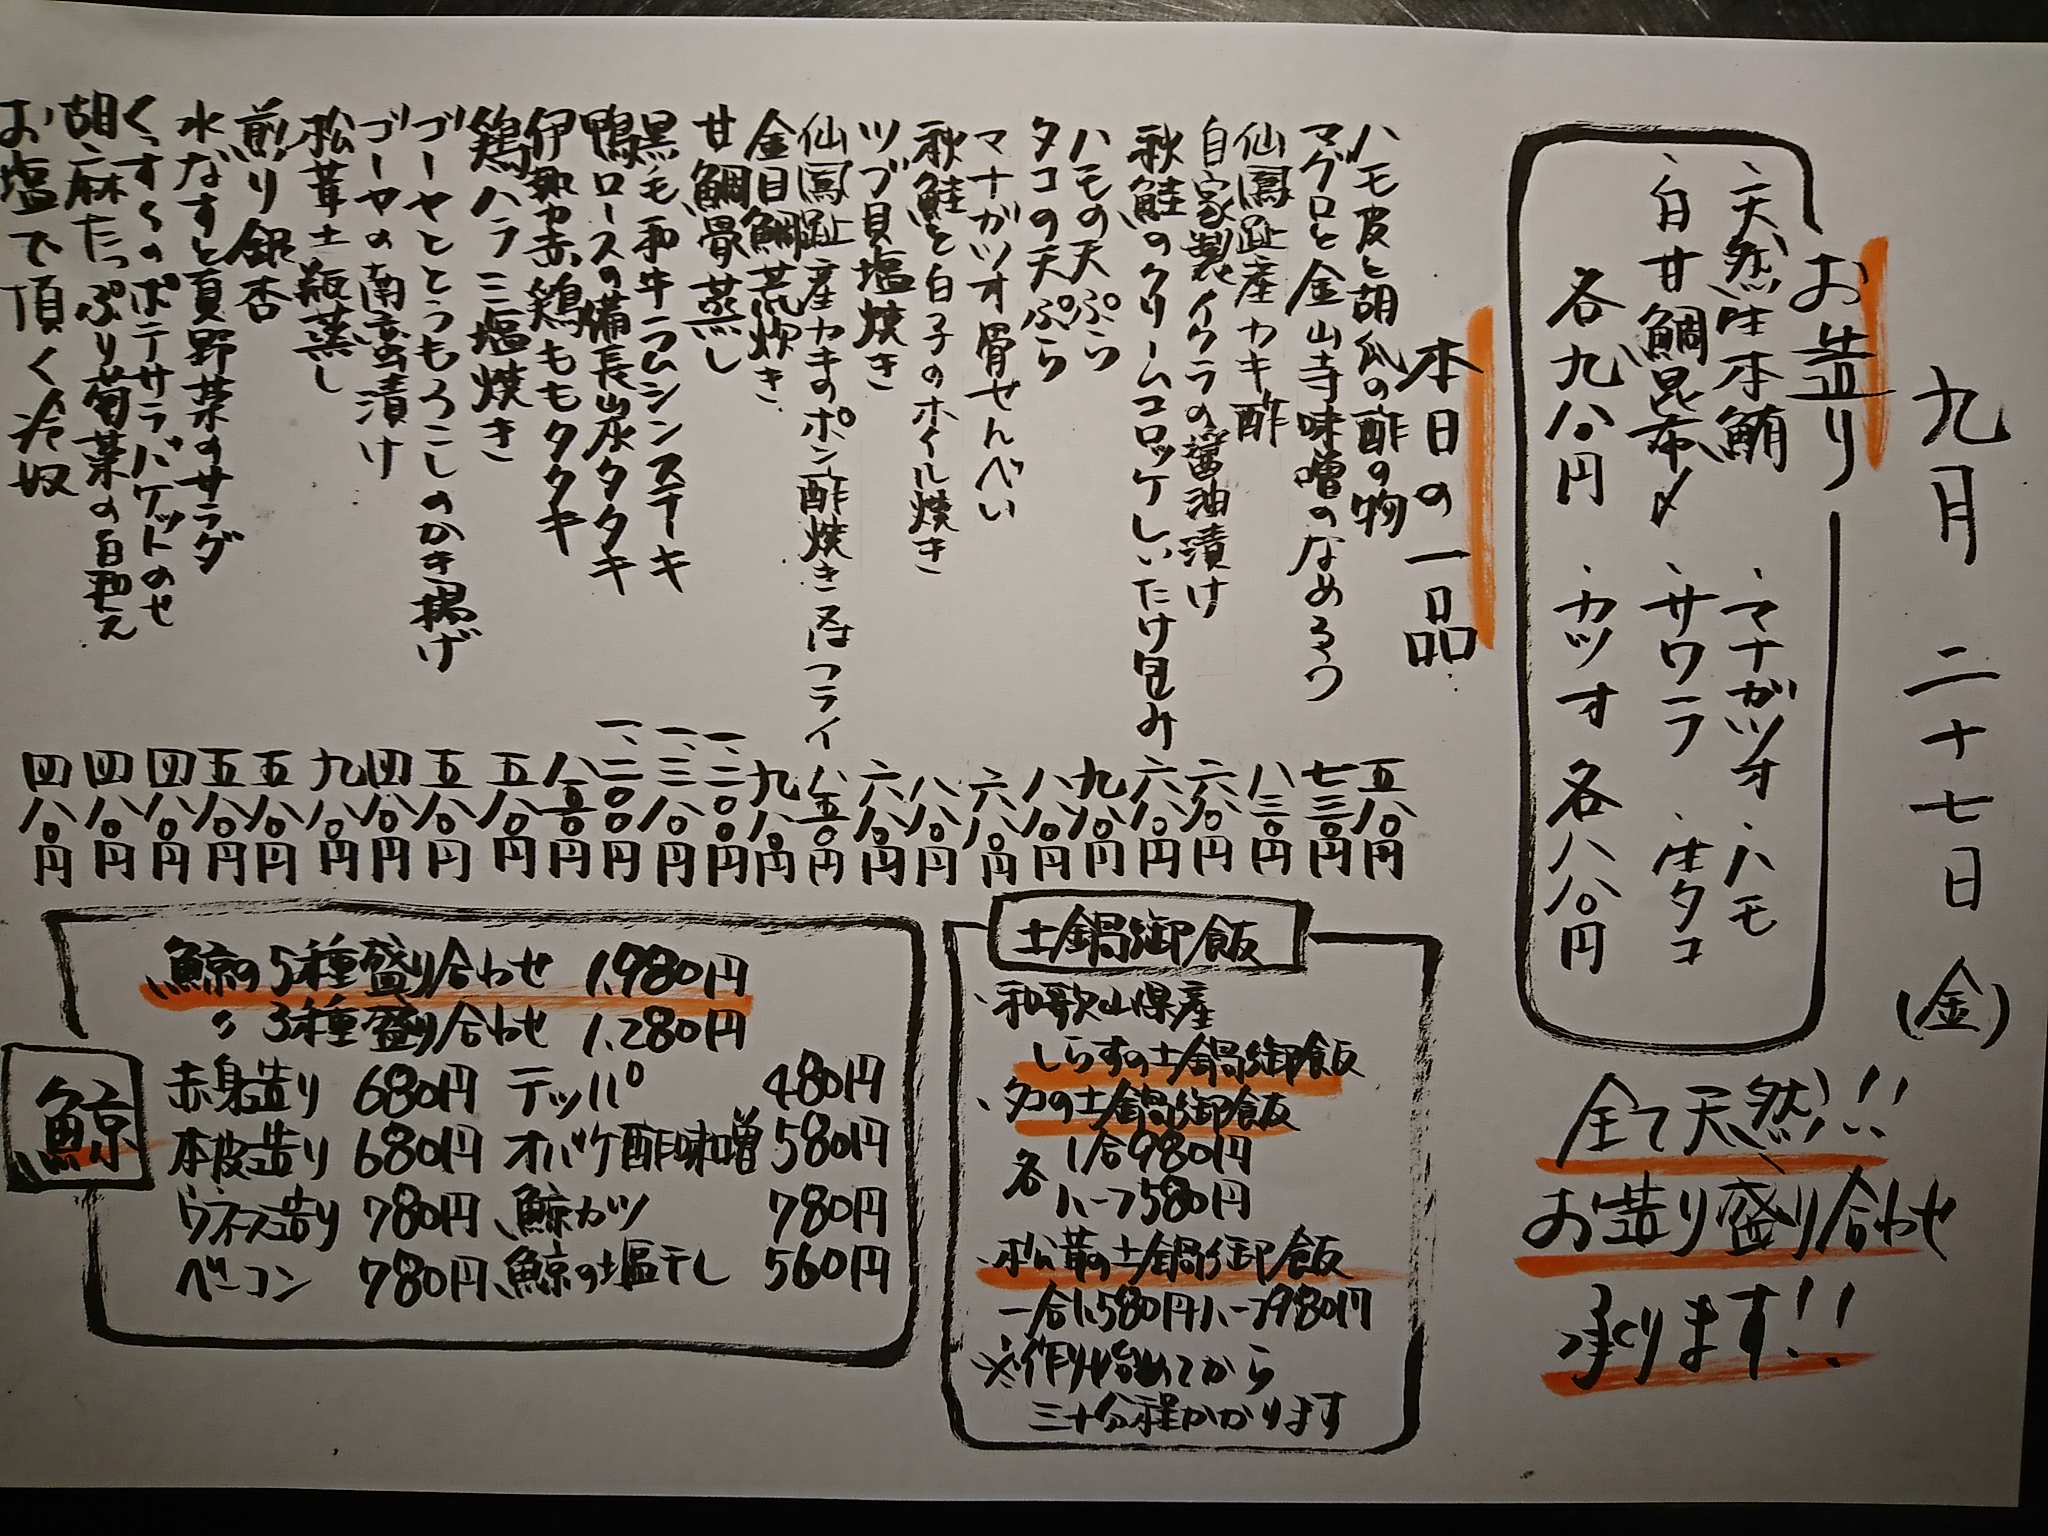 九月二十七日(金)
お造り
、天然生本鮪
、白甘鯛昆布〆
各九八〇円
、マナガツオ、ハモ
、サワラ、生タコ
、カツオ 各八八〇円
全て天然!!
お造り盛り合わせ
承ります!!
本日の一品
ハモ皮と胡瓜の酢の物 五八〇円
マグロと金山寺味噌のなめろう 七三〇円
仙鳳趾産カキ酢 八三〇円
自家製イクラの醤油漬け 六八〇円
秋鮭のクリームコロッケしいたけ包み 六八〇円
ハモの天ぷら 九八〇円
タコの天ぷら 八八〇円
マナガツオ骨せんべい 六八〇円
秋鮭と白子のホイル焼き 八八〇円
ツブ貝塩焼き 六八〇円
仙鳳趾産カキのポン酢焼き又はフライ 八五〇円
金目鯛荒炊き 九八〇円
甘鯛骨蒸し 一、二〇〇円
黒毛和牛ラムシンステーキ 一、三八〇円
鴨ロースの備長山水タタキ 一、二〇〇円
伊勢力赤鶏ももタタキ 八五〇円
鶏ハラミ塩焼き 五八〇円
ゴーヤととうもろこしのかき揚げ 五八〇円
ゴーヤの南蛮漬け 四八〇円
松茸土瓶蒸し 九八〇円
煎り銀杏 五八〇円
水なすと夏野菜のサラダ 五八〇円
くんすくのポテサラバケットのせ 四八〇円
胡麻たっぷり菊菜の白和え 四八〇円
お塩で頂く冷奴 四八〇円
土鍋御飯
、和歌山県産
しらすの土鍋御飯
、タコの土鍋御飯
各 1合980円
ハーフ580円
、松茸の土鍋御飯
一合1,580円ハーフ980円
※作り始めてから
三十分程かかります
鯨
鯨の5種盛り合わせ 1,980円
〃 3種盛り合わせ 1,280円
赤身造り 680円 テッパ 480円
本皮造り 680円 オバケ酢味噌 580円
ウネス造り 780円 鯨カツ 780円
ベーコン 780円 鯨の塩干し 560円